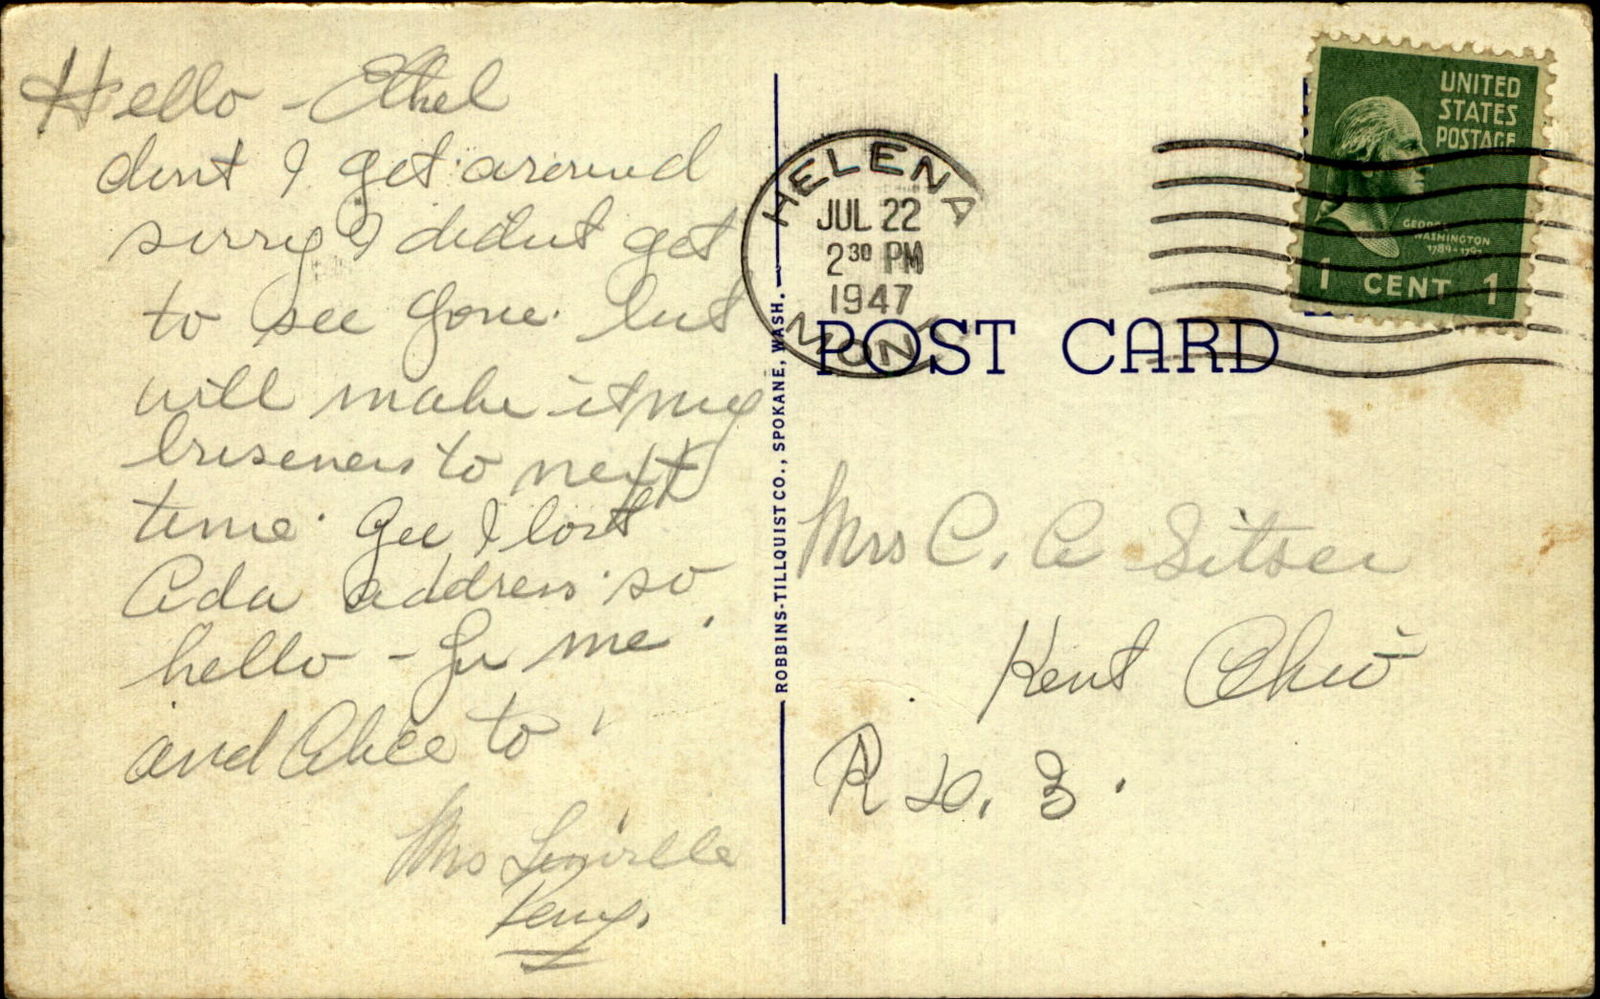 Hello - Ethel
dont I get around
sorry I didnt get
to see you. but
will make it my
buseness to next
time. Gee I lost
Ada address so
hello - for me.
and Alice to
Mrs
HELENA
JUL 22
2 30 PM
1947
MONT
UNITED
STATES
POSTAGE
GEORGE
WASHINGTON
1789-1797
1 CENT 1
POST CARD
ROBBINS-TILLQUIST CO., SPOKANE, WASH.
Mrs C. A Sitser
Kent Ohio
R D. 3.